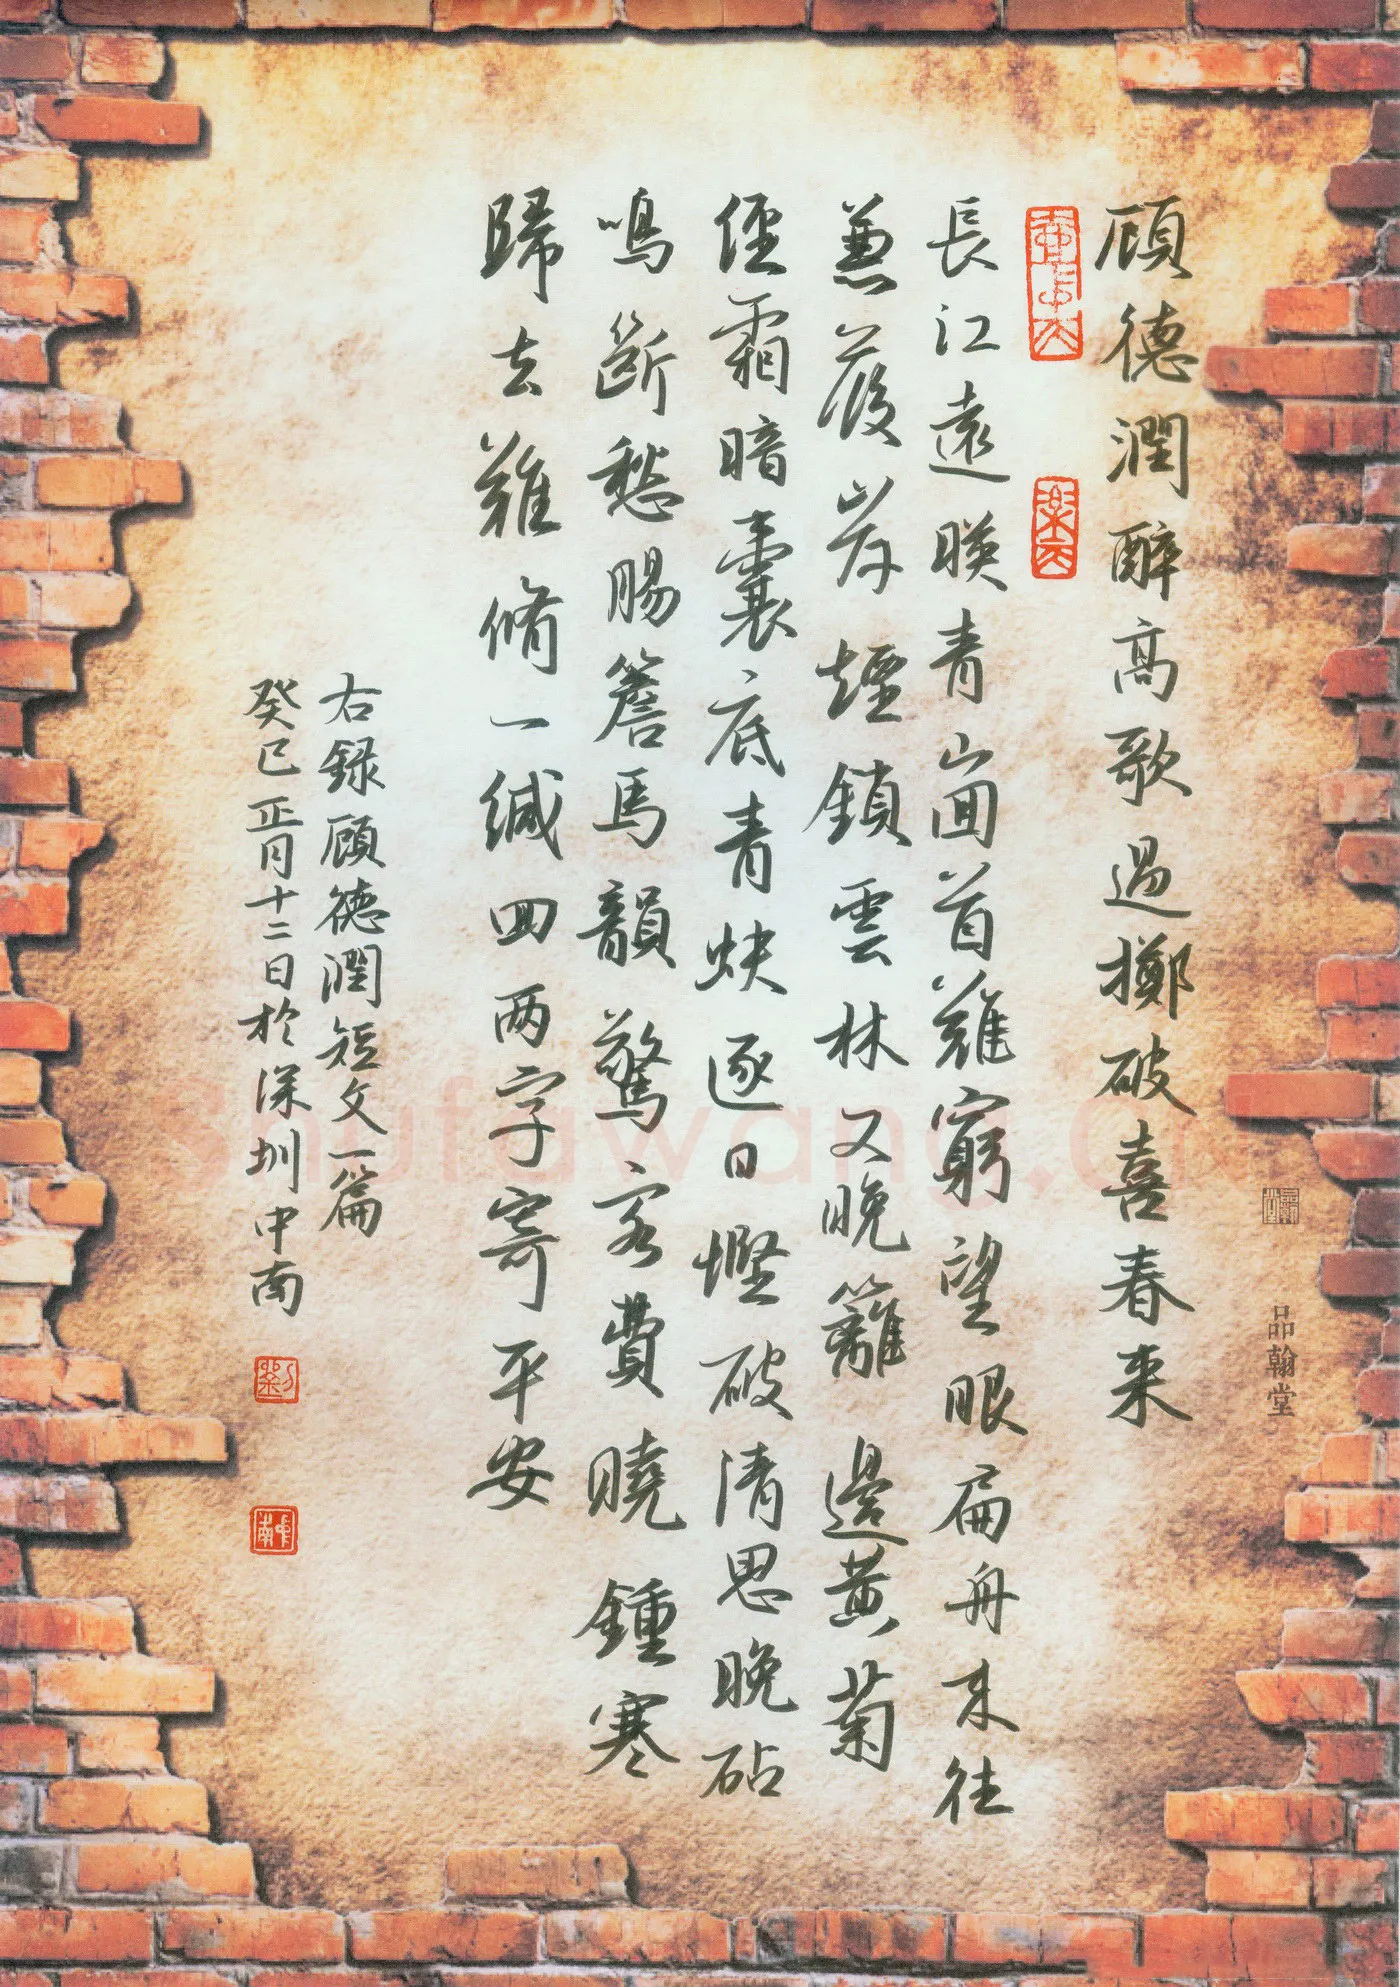 顾德潤醉高歌過擲破喜春来
長江遠暎青山回首難窮望眼扁舟来往
蒹葭岸煙鎖雲林又晚籬邊黄菊
經霜暗囊底青蚨逐日慳破清思晚砧
鳴断愁腸簷馬韻驚客費曉鍾寒
歸去難脩一缄回两字寄平安
右録顾德潤短文一篇
癸巳正月十二日於深圳中南
品翰堂
Shufawang.cn